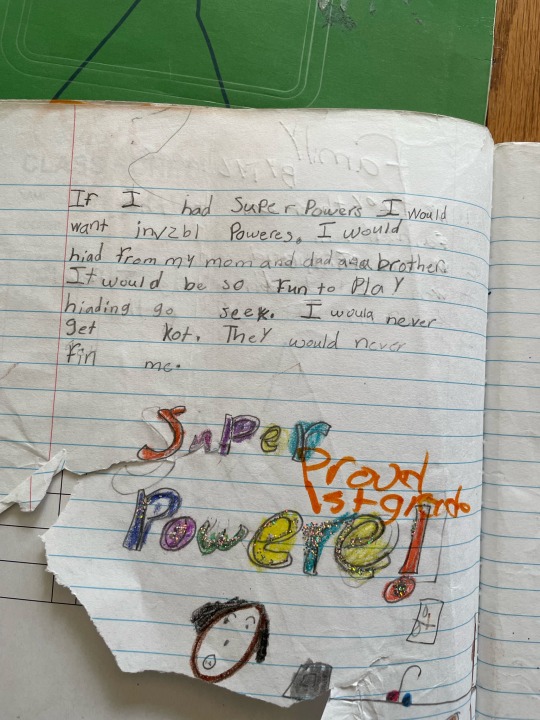 Family
If I had Super Powers I would
want invzbl Poweres. I would
hiad from my mom and dad and brother.
It would be so fun to Play
hiading go seek. I would never
get kot. They would never
fin me.
Super
Proud
1st grade
Powere!